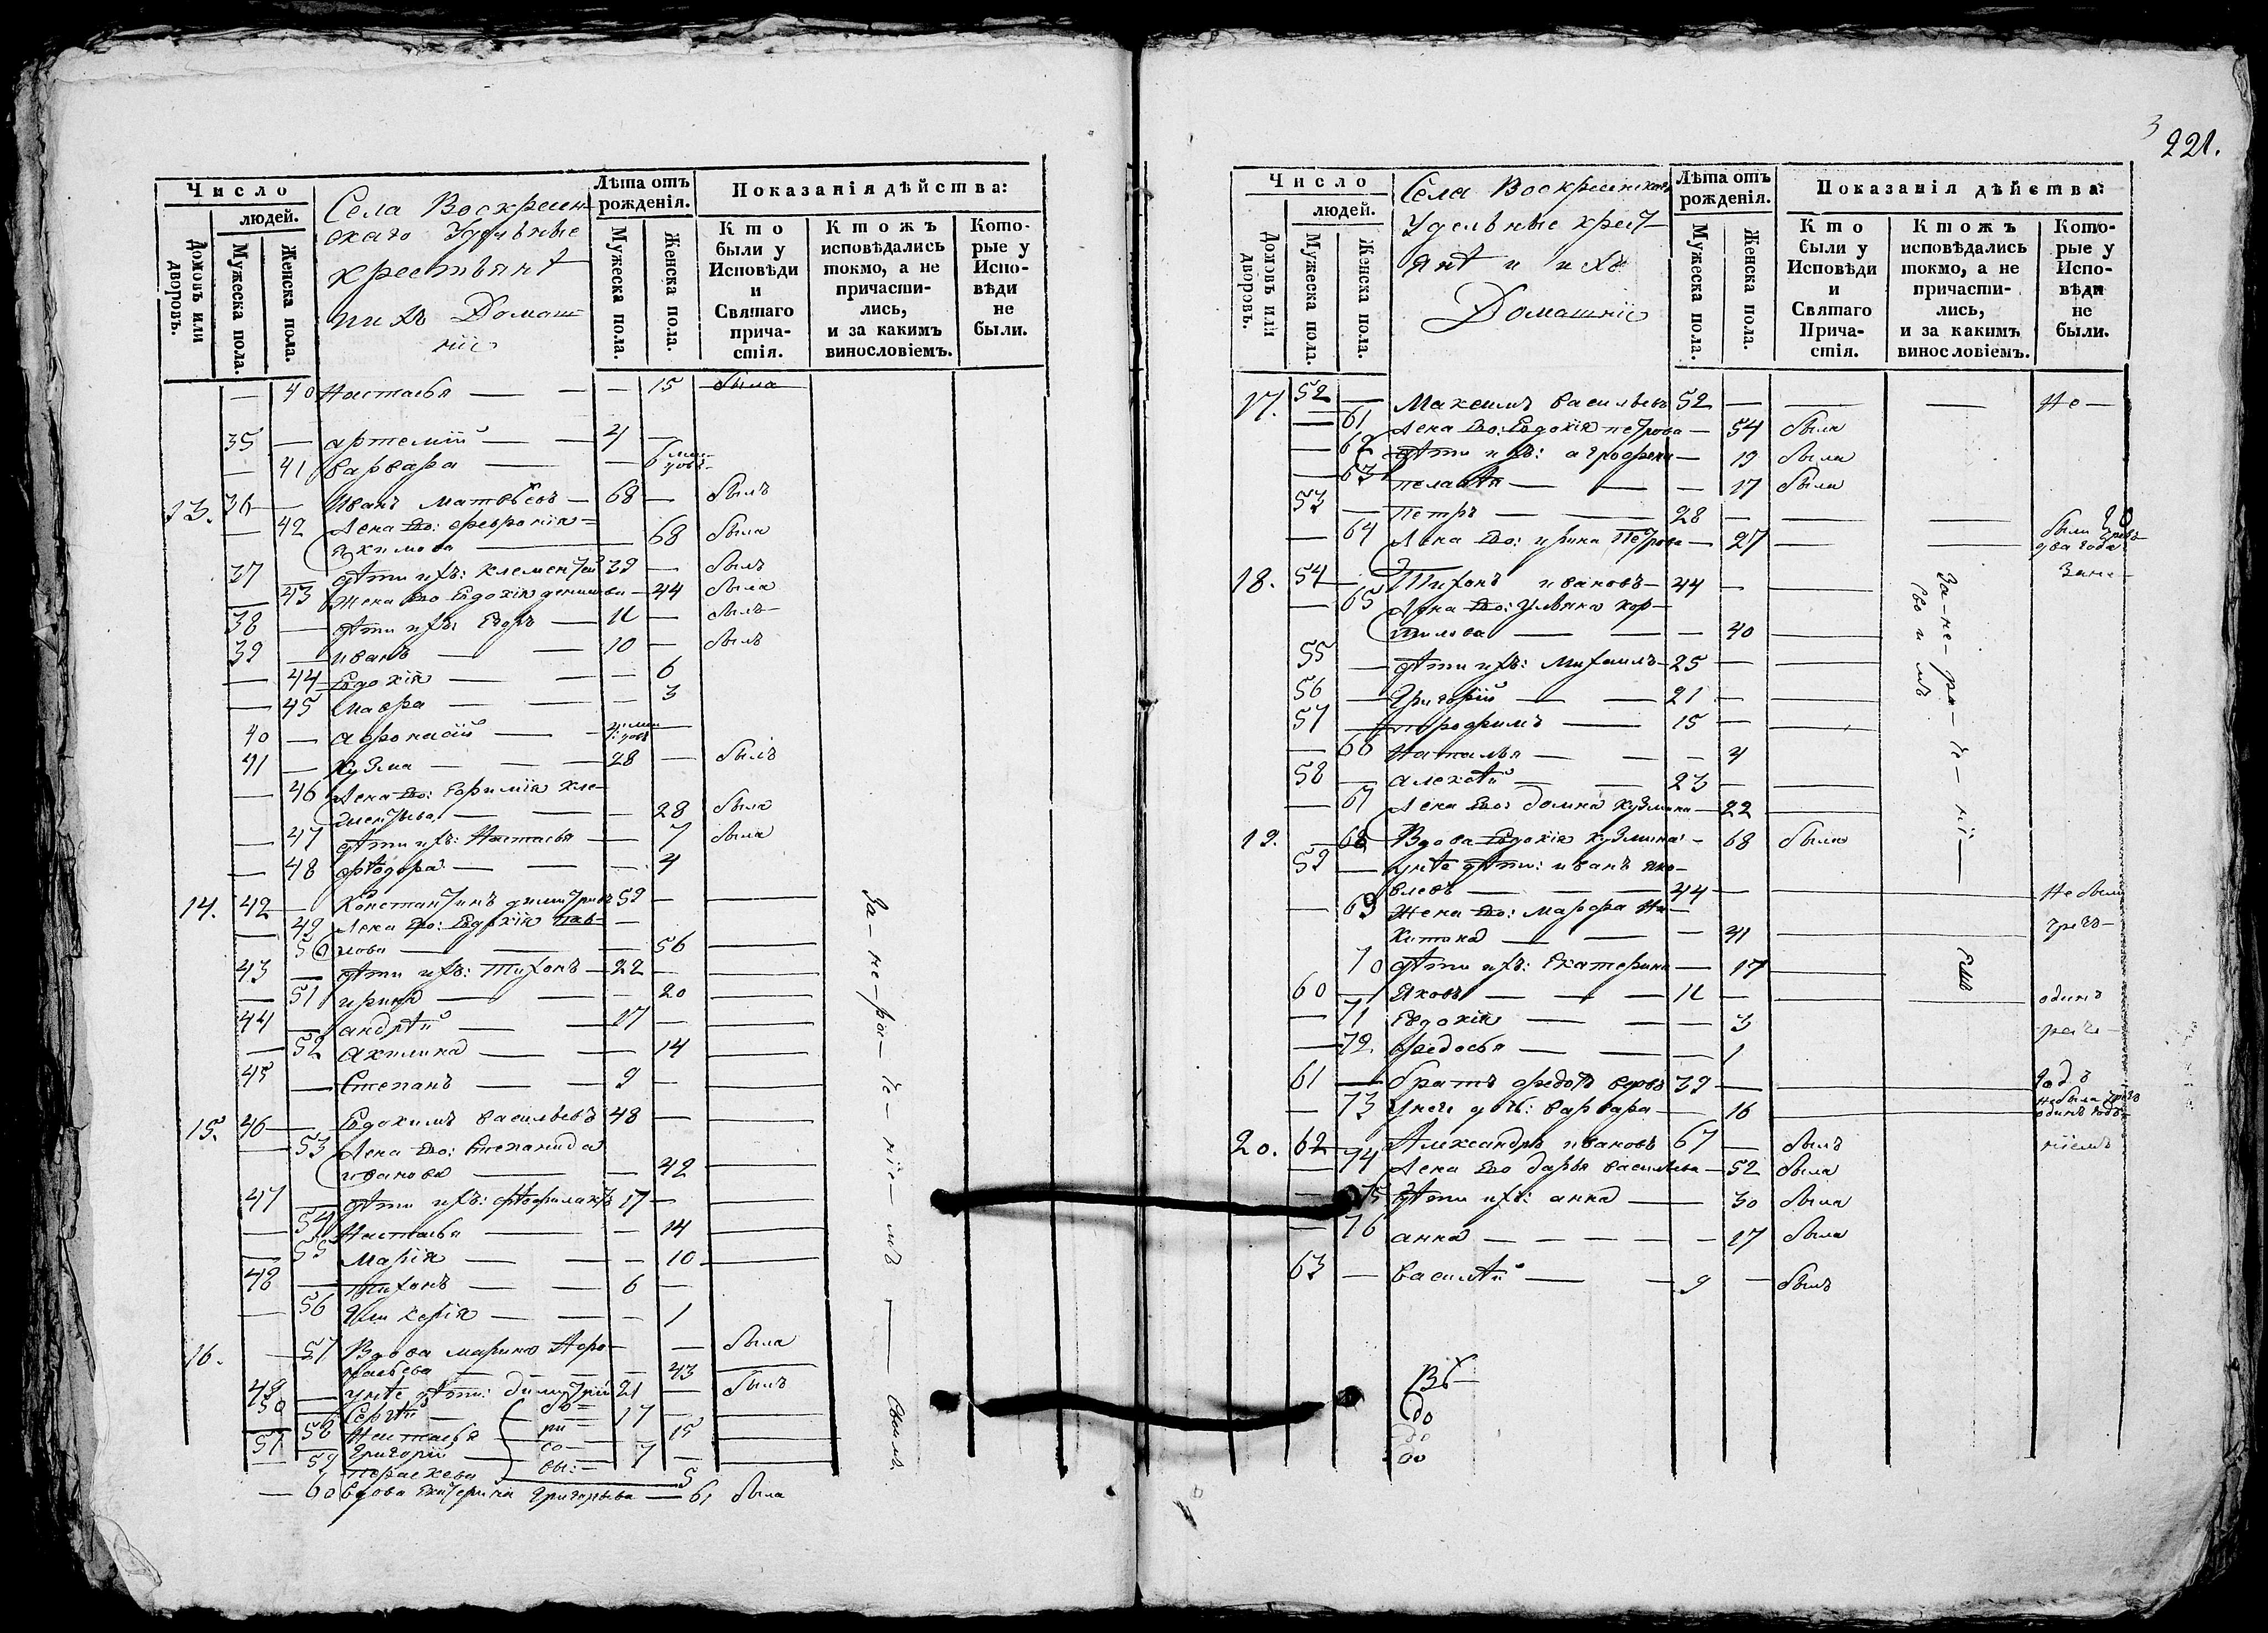 Число
людей.
Домовъ или дворовъ.
Мужеска пола.
Женска пола.
Села Воскресен
скаго Удѣльные
крестьянѣ
и ихъ Домаш
ніе
Лѣта отъ рожденія.
Мужеска пола.
Женска пола.
Показанія дѣйства:
Кто были у Исповѣди и Святаго причастія.
Ктожъ исповѣдались токмо, а не причастились, и за какимъ винословіемъ.
Которые у Исповѣди не были.
— 40 Настасья — — — 15 была
35 — артемій — — 4 —
— 41 варвара — —
13. 36 — Иванъ Матвѣевъ — 68 — былъ
— 42 Жена Его: февронія
Якимова — 68 была
37 — дѣти ихъ: Клементей 39 — былъ
— 43 Жена Его Евдокія денисова — 44 была
38 — дѣти ихъ: Егоръ — 11 — былъ
39 — иванъ — — 10 — былъ
— 44 Евдокія — — — 6
— 45 Мавра — — — 3
40 — афонасій — —
41 — Кузма — — 28 — былъ
— 46 Жена Его: Евфимія Кле-
ментьева — — 28 была
— 47 дѣти ихъ: Настасья — 7 была
— 48 фѣодора — — 4
14. 42 — Константинъ димитріевъ 59 —
— 49 Жена Его: Евдокія пав-
50 лова — — 56
43 — дѣти ихъ: Тихонъ — 22 —
— 51 ирина — — — 20
44 — андрѣй — — 17 —
— 52 Акилина — — 14
45 — Степанъ — — 9 —
15. 46 — Евдокимъ васильевъ 48 —
— 53 Жена Его: Степанида
иванова — — 42
47 — дѣти ихъ: фѣофилактъ 17 —
— 54 Настасья — — 14
— 55 Марія — — — 10
48 — Тихонъ — — 6 —
— 56 Гликерія — — — 1
16. — 57 Вдова марина Афо-
насьева — — 43 была
49 — унѣе дѣти: димитрій 21 — былъ
50 — Сергѣй — 17 —
— 58 Настасья — 15
51 — Григорій — 7 —
— 59 Параскева — 5
— 60 вдова Екатерина Григорьева — 61 была
За — не — ра — че — ніе — мъ — своимъ.
3
221.
Число
людей.
Домовъ или дворовъ.
Мужеска пола.
Женска пола.
Села Воскресенскаго
Удельные крест-
янѣ и ихъ
Домашніе
Лѣта отъ рожденія.
Мужеска пола.
Женска пола.
Показанія дѣйства:
Кто были у Исповѣди и Святаго Причастія.
Ктожъ исповѣдались токмо, а не причастились, и за какимъ винословіемъ.
Которые у Исповѣди не были.
17. 52 — Максимъ васильевъ 52 — — — Не —
— 61 Жена Его: Евдокія петрова — 54 была
— 62 дѣти ихъ: агрофена — 19 была
— 63 пелагѣя — — — 17 была
53 — Петръ — — 28 — — —
— 64 Жена Его: ирина Петрова — 27 — — два года
18. 54 — Тихонъ ивановъ — 44 —
— 65 Жена Его: Ульяна кор-
нилова — — — 40
55 — дѣти ихъ: Михаилъ — 25 —
56 — Григорій — — 21 —
57 — трофимъ — 15 —
— 66 Наталья — — — 4
58 — алексѣй — — 23 —
— 67 Жена Его: домна кузмина — 22
19. — 68 Вдова Евдокія кузмина — 68 была
59 — унѣе дѣти: иванъ яко-
влевъ — — 44 — Не были
— 69 Жена Его: марфа Ни-
китина — — — 41 чрезъ
70 дѣти ихъ: Екатерина — 17
60 — Яковъ — — 11 — одинъ
— 71 Евдокія — — — 3
— 72 Федосья — — — 1
61 — братъ федотъ 39 — годъ
— 73 унего дочь: варвара — 16 небыла чрезъ
одинъ годъ
20. 62 — Александръ ивановъ 67 — былъ
— 74 Жена Его дарья васильева — 52 была
— 75 дѣти ихъ: анна — — 30 была
— 76 анна — — — — 17 была
63 — василѣй — — 9 — былъ
За — не — ра — че — ні —
своимъ